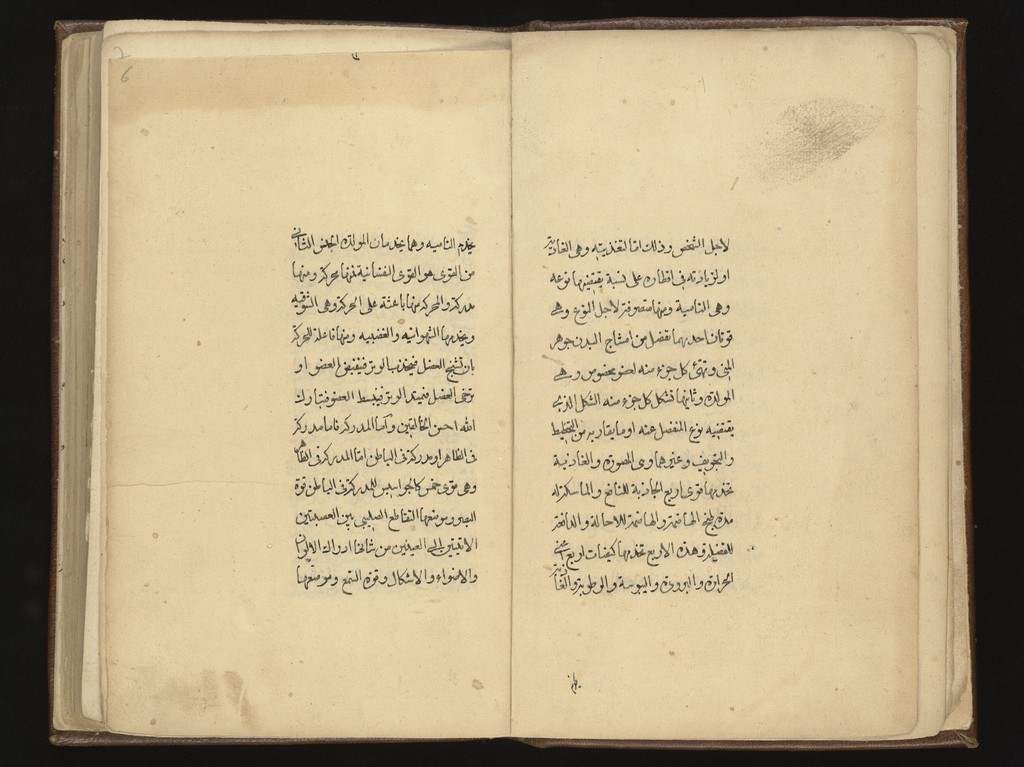 لاجل الشخص وذلك اما لتغذيته وهى الغاذية
او لزيادته فى اقطاره على نسبة يقتضيها نوعه
وهى النامية ومنها متصرفة لاجل النوع وهى
قوتان احديهما تفصل من امشاج البدن جوهر
المنى وتهئ كل جزء منه لعضو مخصوص وهى
المولدة وثانيها تشكل كل جزء منه الشكل الذى
يقتضيه نوع المنفصل عنه او ما يقاربه من التخطيط
والتجويف وغيرهما وهى المصورة والغاذية
تخدمها قوى اربع الجاذبة للنافع والماسكة له
مدة طبخ الهاضمة والهاضمة للاحالة والدافعة
للفضلة وهذه الاربع تخدمها كيفيات اربع اعنى
الحرارة والبرودة واليبوسة والرطوبة والغاذية
يخدم
٣
2
6
يخدم النامية وهما يخدمان المولدة الجنس الثانى
من القوى هو القوى النفسانية فمنها محركة ومنها
مدركة والمحركة منها باعثة على الحركة وهى الشوقيه
ويخدمها الشهوانيه والغضبيه ومنها فاعلة للحركة
بان تشنج العضل فيجذب الوتر فينقبض العضو او
ترخى العضل فيمتد الوتر فينبسط العضو فتبارك
الله احسن الخالقين واما المدركة فاما مدركة
فى الظاهر او مدركة فى الباطن اما المدركة فى الظاهر
وهى قوى خمس كالجواسيس للمدركة فى الباطن قوة
البصر وموضعها التقاطع الصليبى بين العصبتين
الاتيتين الى العينين من شانها ادراك الالوان
والاضواء والاشكال وقوة السمع وموضعها